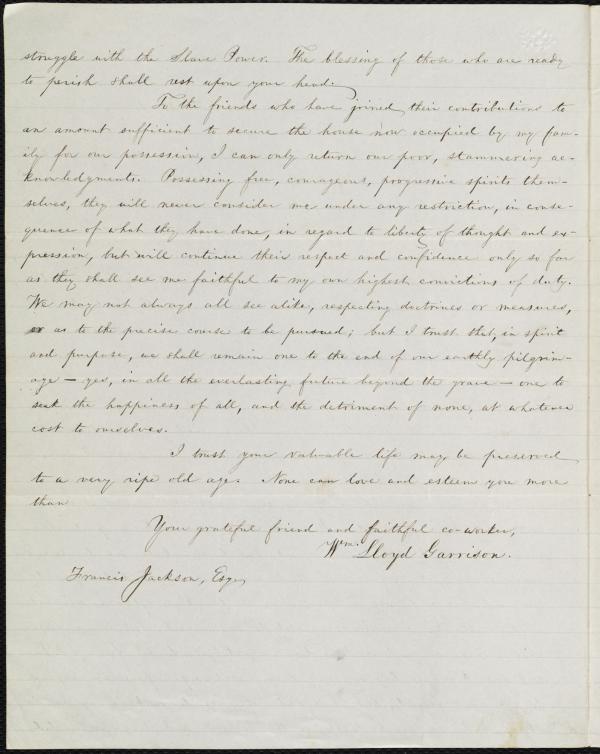 struggle with the Slave Power. The blessing of those who are ready
to perish shall rest upon your head.
To the friends who have joined their contributions to
an amount sufficient to secure the house now occupied by my fam-
ily for our possession, I can only return our poor, stammering ac-
knowledgments. Possessing free, courageous, progressive spirits them-
selves, they will never consider me under any restriction, in conse-
quence of what they have done, in regard to liberty of thought and ex-
pression, but will continue their respect and confidence only so far
as they shall see me faithful to my own highest convictions of duty.
We may not always all see alike, respecting doctrines or measures,
or as to the precise course to be pursued; but I trust that, in spirit
and purpose, we shall remain one to the end of our earthly pilgrim-
age — yes, in all the everlasting future beyond the grave — one to
seek the happiness of all, and the detriment of none, at whatever
cost to ourselves.
I trust your valuable life may be preserved
to a very ripe old age. None can love and esteem you more
than
Your grateful friend and faithful co-worker,
Wm. Lloyd Garrison.
Francis Jackson, Esq.